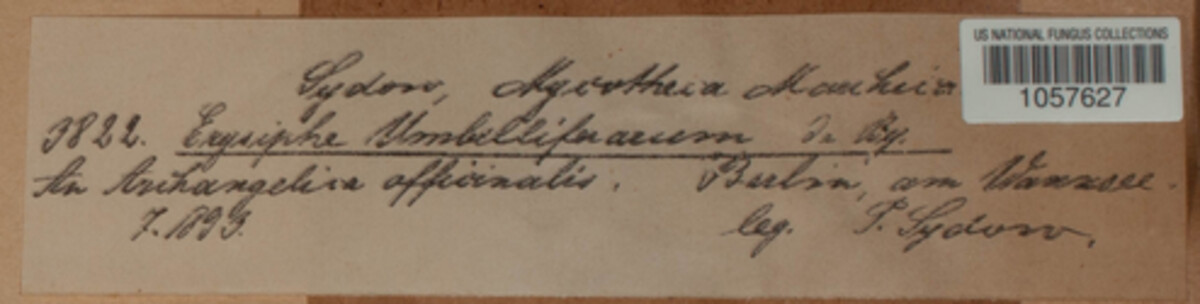 US NATIONAL FUNGUS COLLECTIONS
1057627
Sydow, Mycotheca Marchica
3822. Erysiphe Umbelliferarum De By.
An Archangelica officinalis. Berlin, am Wannsee.
7. 1893. leg. P. Sydow.